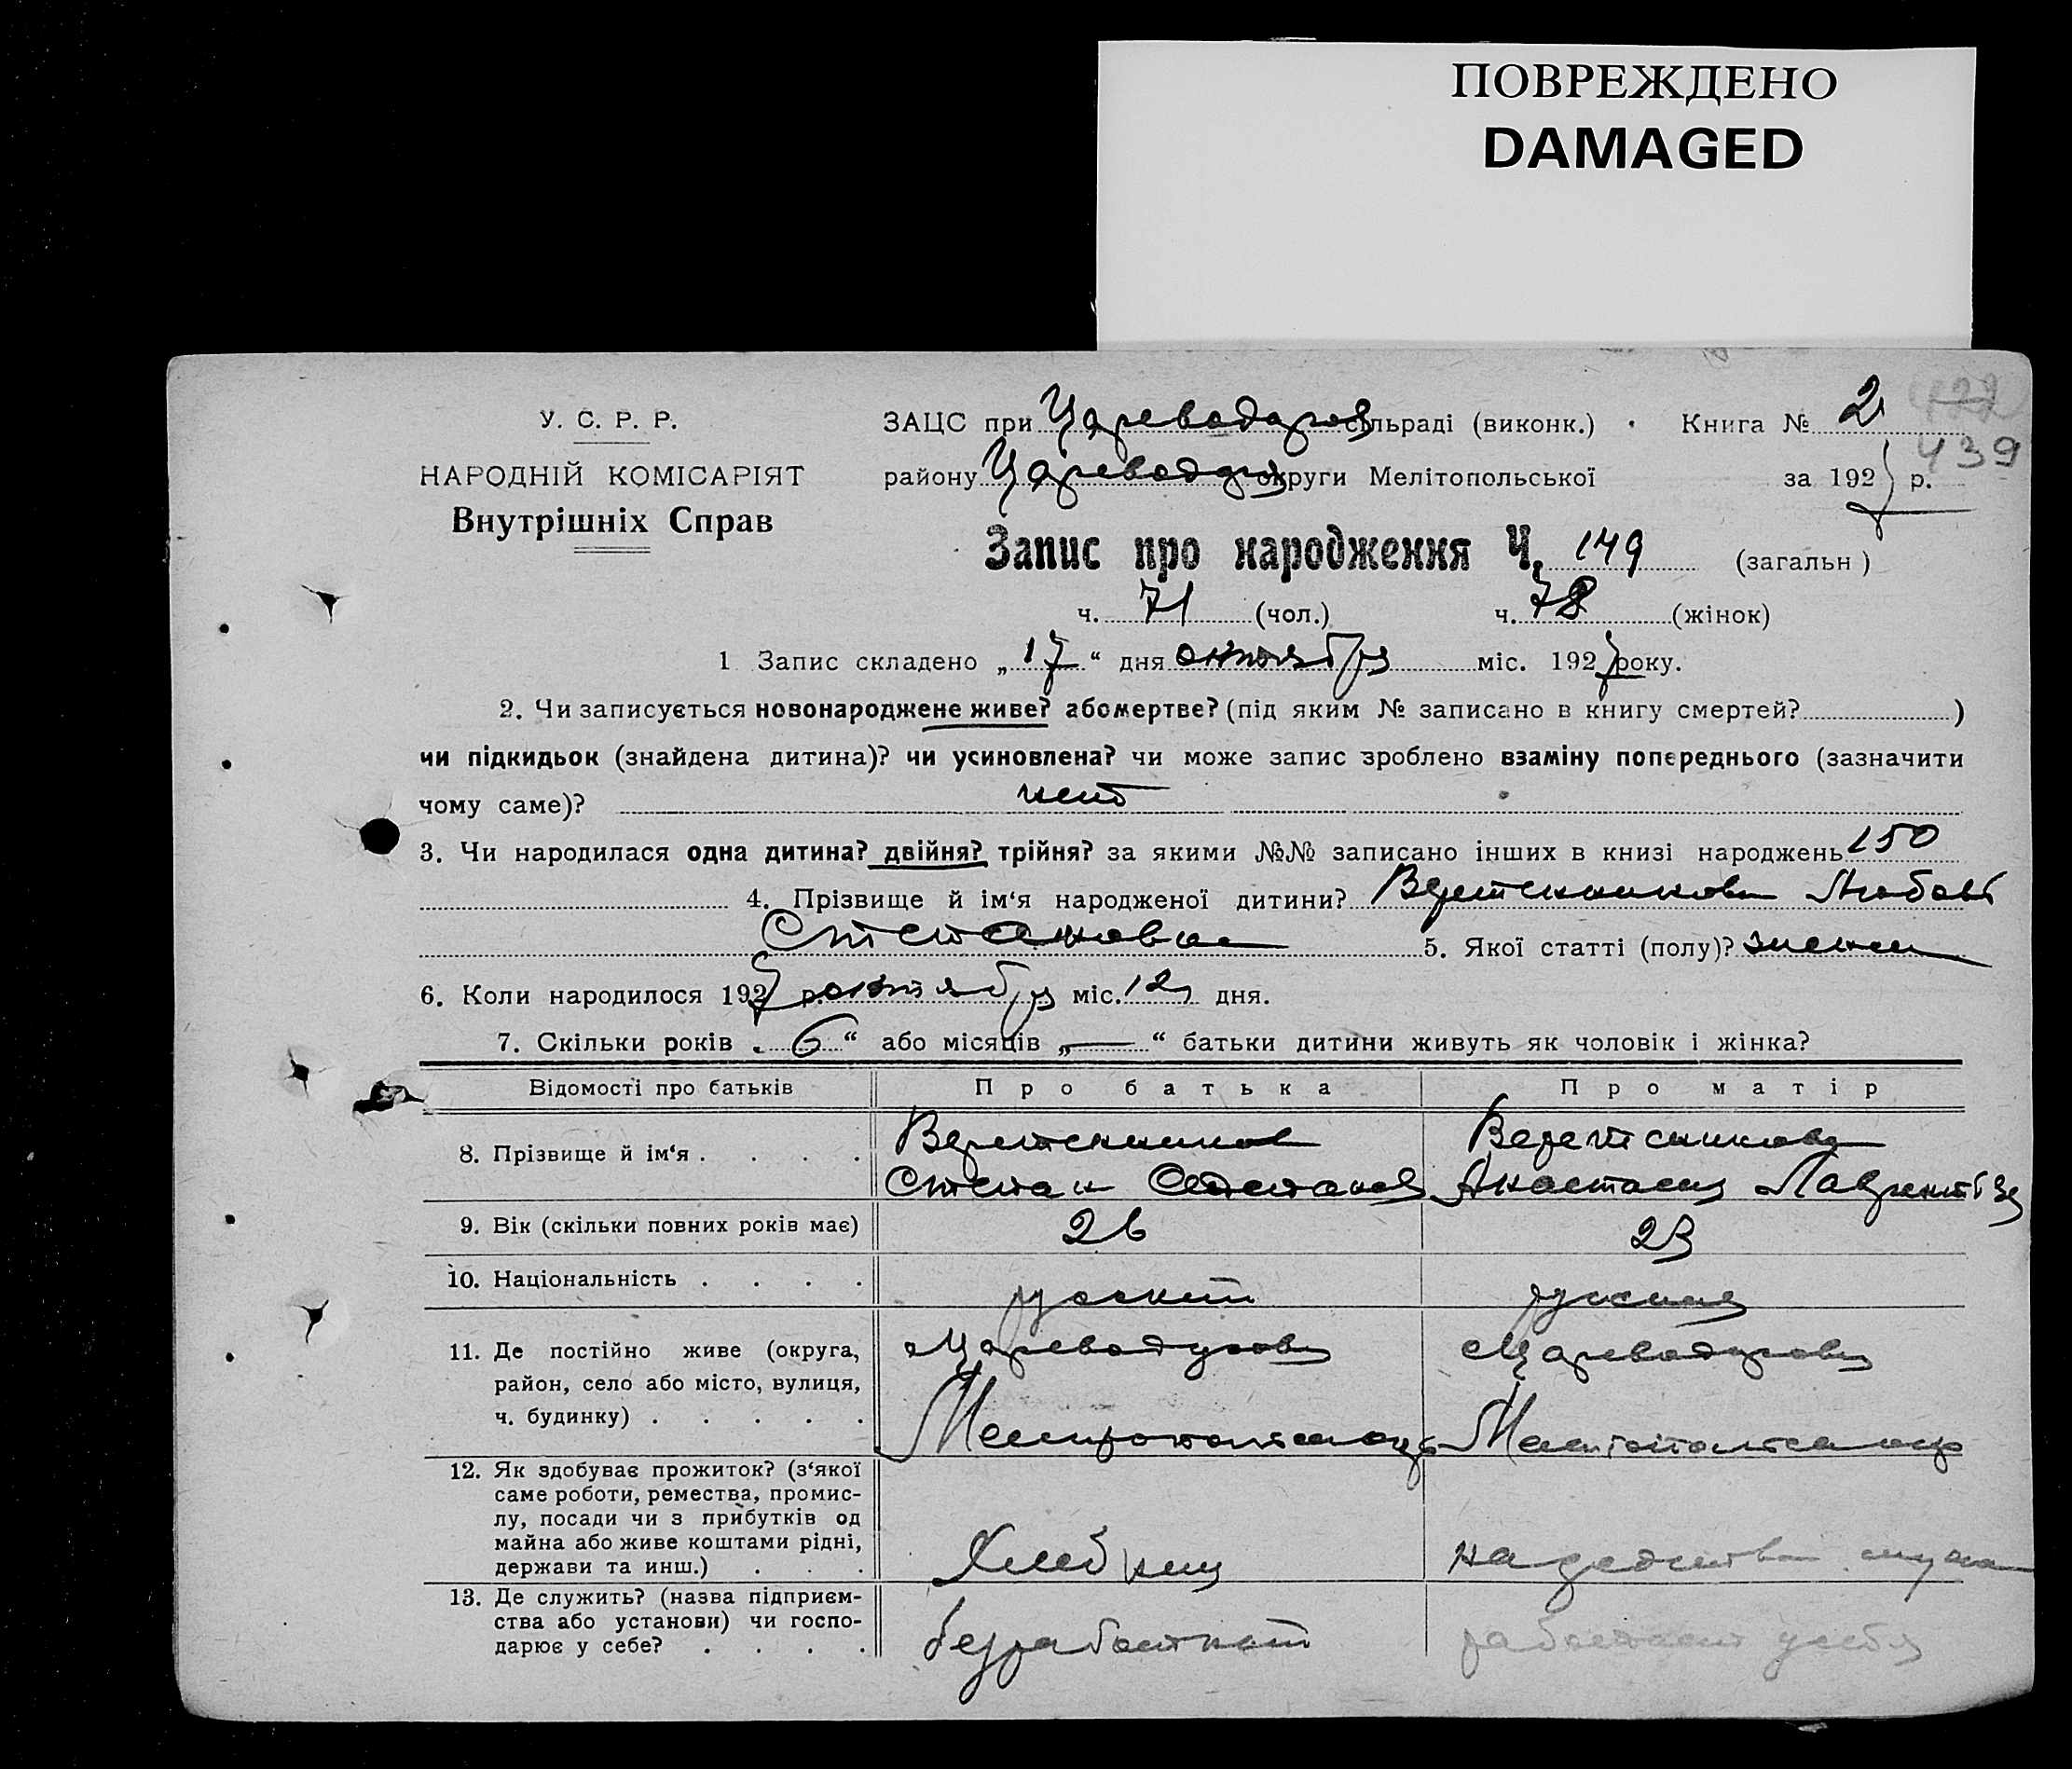 ПОВРЕЖДЕНО
DAMAGED
У. С. Р. Р.
НАРОДНІЙ КОМІСАРІЯТ
Внутрішніх Справ
ЗАЦС при сільраді (виконк.) Книга № 2
439
району округи Мелітопольської за 1927 р.
Запис про народження Ч. 149 (загальн)
ч. 71 (чол.) ч. 78 (жінок)
1 Запис складено „17“ дня октября міс. 1927 року.
2. Чи записується новонароджене живе? або мертве? (під яким № записано в книгу смертей? )
чи підкидьок (знайдена дитина)? чи усиновлена? чи може запис зроблено взаміну попереднього (зазначити
чому саме)? нет
3. Чи народилася одна дитина? двійня? трійня? за якими №№ записано інших в книзі народжень 150
4. Прізвище й ім‘я народженої дитини? Веретенникова Любовь
Степановна 5. Якої статті (полу)? женск
6. Коли народилося 1927 р. октября міс. 12 дня.
7. Скільки років „6“ або місяців „—“ батьки дитини живуть як чоловік і жінка?
Відомості про батьків Про батька Про матір
8. Прізвище й ім‘я . . . . Веретенников Веретенникова
Степан Степанов Анастасия
9. Вік (скільки повних років має) 26 23
10. Національність . . . . русский русская
11. Де постійно живе (округа,
район, село або місто, вулиця,
ч. будинку) . . . . .
12. Як здобуває прожиток? (з‘якої
саме роботи, ремества, промис-
лу, посади чи з прибутків од
майна або живе коштами рідні,
держави та инш.) . . . на средства мужа
13. Де служить? (назва підприєм-
ства або установи) чи госпо-
дарює у себе? . . . . безработный работает у себя